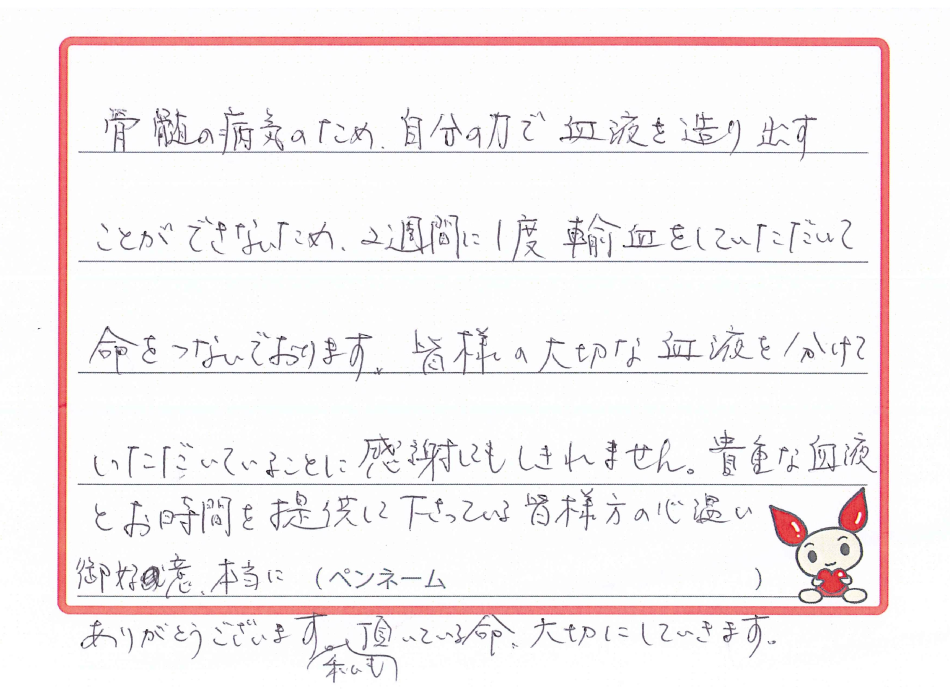 骨髄の病気のため、自分の力で血液を造り出す
ことができないため、2週間に1度輸血をしていただいて
命をつないでおります。皆様の大切な血液を分けて
いただいていることに感謝してもしきれません。貴重な血液
とお時間を提供して下さっている皆様方の心温い
御好意、本当に（ペンネーム　　　　　）
ありがとうございます。頂いている命、大切にしていきます。
私も